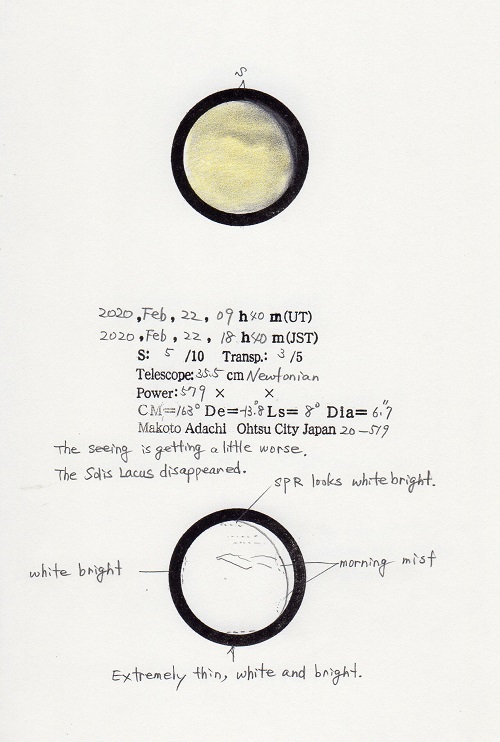 S
2020, Feb, 22, 09 h40 m(UT)
2020, Feb, 22, 18 h40 m(JST)
S: 5 /10 Transp.: 3 /5
Telescope: 35.5 cm Newtonian
Power: 579 × ×
CM=163° De=-13.8 Ls= 8° Dia= 6."7
Makoto Adachi Ohtsu City Japan 20-579
The seeing is getting a little worse.
The Solis Lacus disappeared.
SPR looks white bright.
white bright
morning mist
Extremely thin, white and bright.